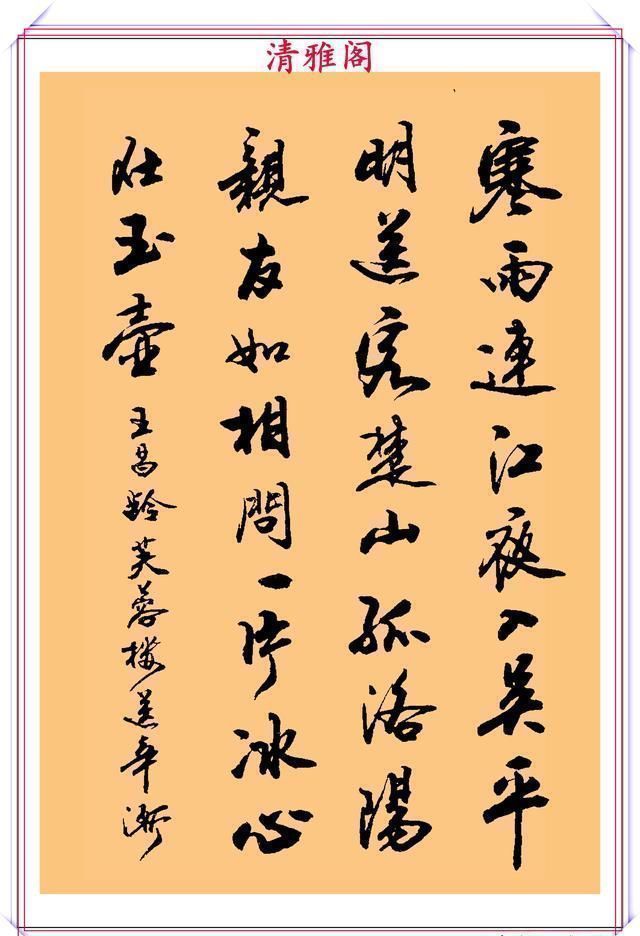 清雅阁
寒雨連江夜入吴平
明送客楚山孤洛陽
親友如相問一片冰心
在玉壺
王昌齡芙蓉樓送辛漸